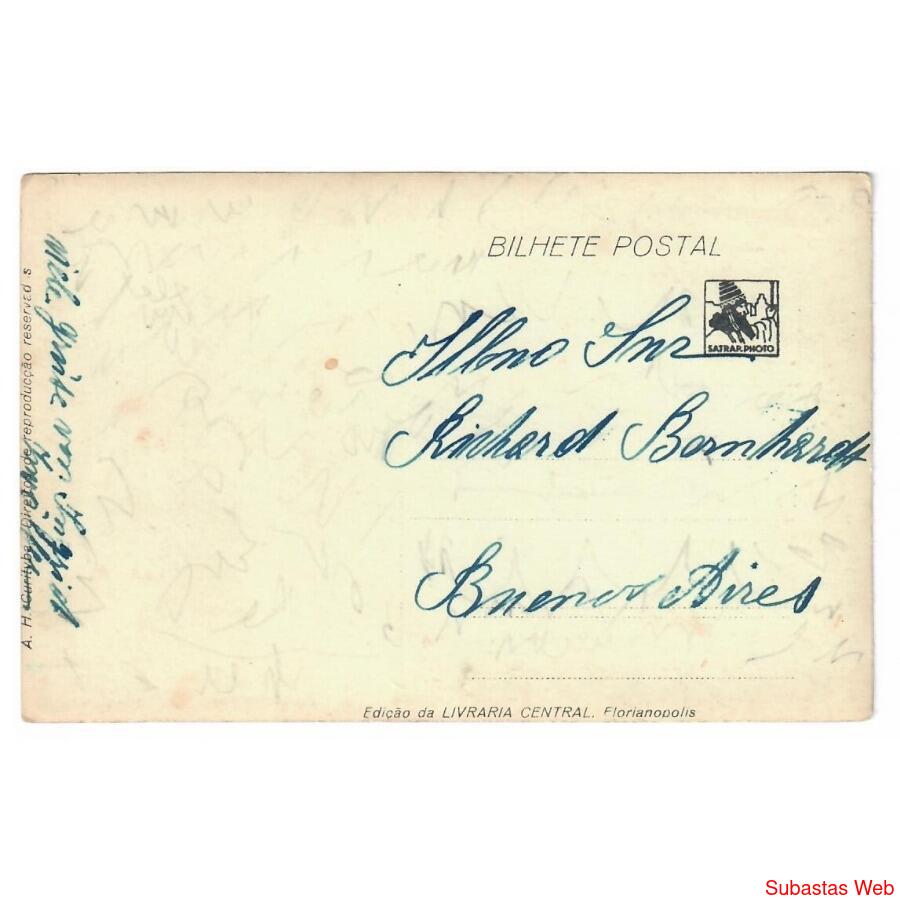 BILHETE POSTAL
SATRAP. PHOTO
Illmo Snr
Richard Bernhardt
Buenos Aires
Edição da LIVRARIA CENTRAL. Florianopolis
A. H. Curityba Direitos de reproducção reservados
von Ingrid
Subastas Web